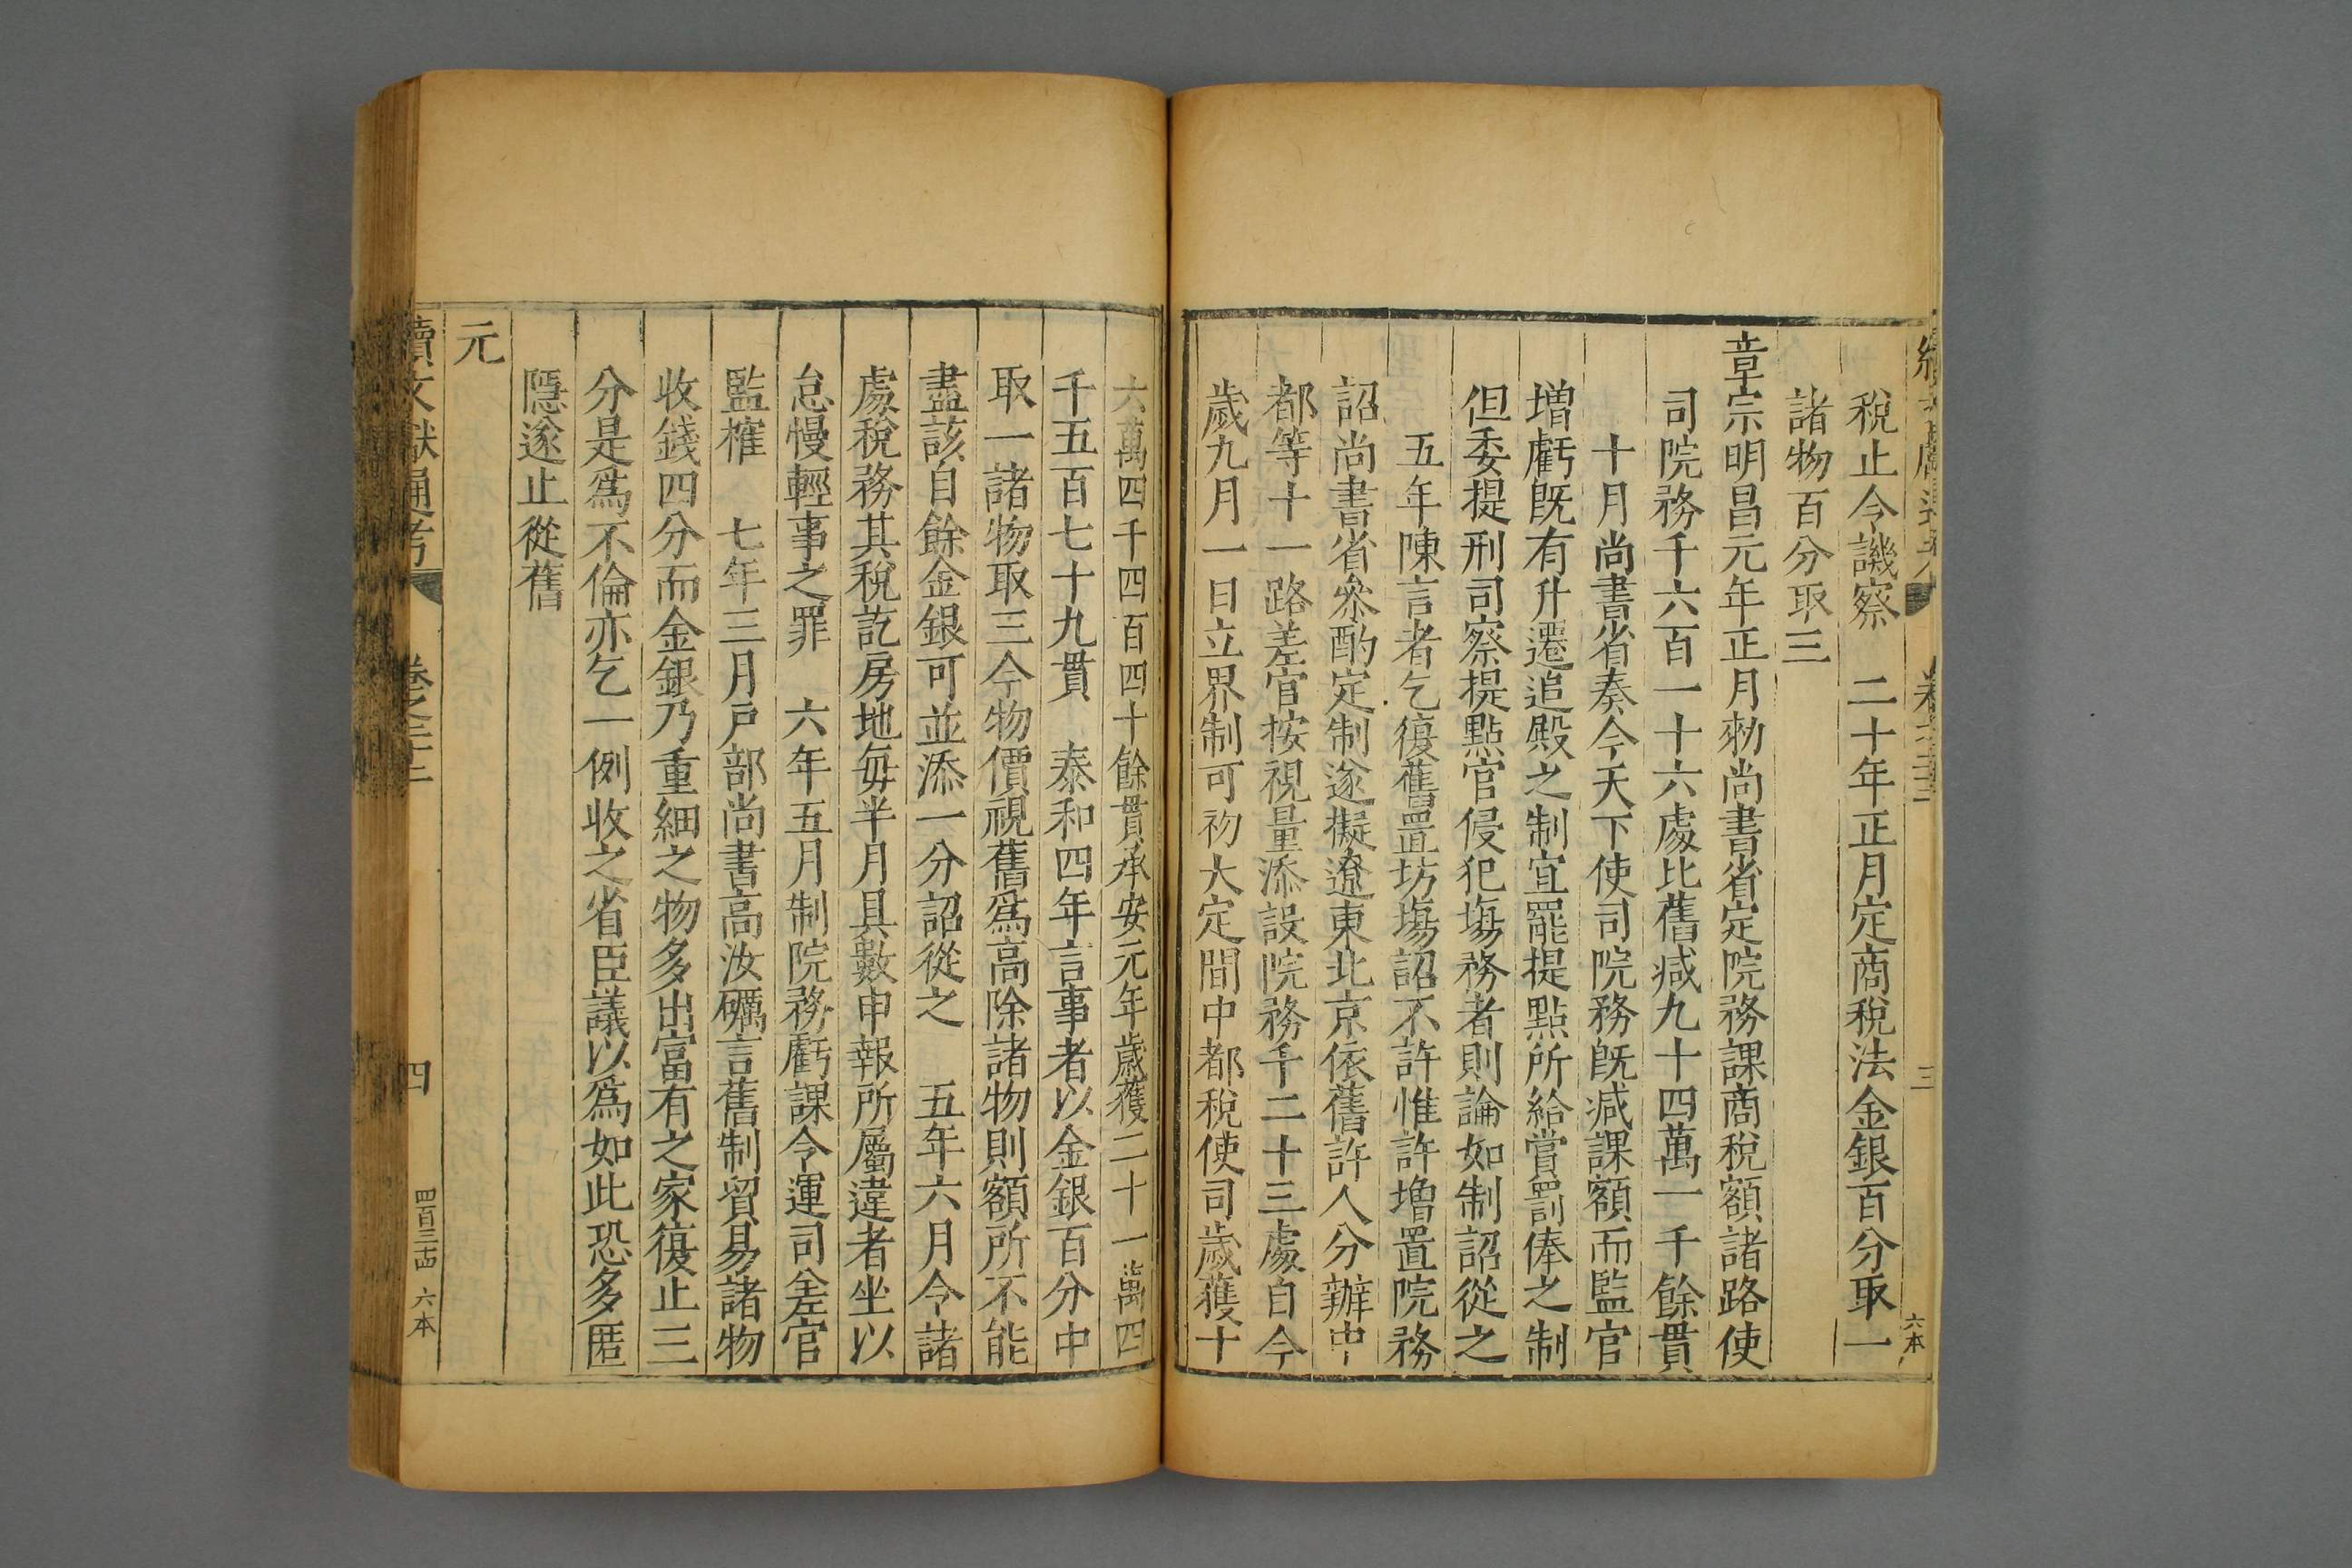 稅止今譏察　二十年正月定商稅法金銀百分取一
諸物百分取三
章宗明昌元年正月勑尚書省定院務課商稅額諸路使
司院務千六百一十六處比舊減九十四萬一千餘貫
十月尚書省奏今天下使司院務旣減課額而監官
增虧旣有升遷追殿之制宜罷提點所給賞罰俸之制
但委提刑司察提點官侵犯塲務者則論如制詔從之
五年陳言者乞復舊置坊塲詔不許惟許增置院務
詔尚書省叅酌定制遂擬遼東北京依舊許人分辦中
都等十一路差官按視量添設院務千二十三處自今
歲九月一日立界制可初大定間中都稅使司歲獲十
六萬四千四百四十餘貫承安元年歲獲二十一萬四
千五百七十九貫　泰和四年言事者以金銀百分中
取一諸物取三今物價視舊爲高除諸物則額所不能
盡該自餘金銀可並添一分詔從之　五年六月令諸
處稅務其稅訖房地每半月具數申報所屬違者坐以
怠慢輕事之罪　六年五月制院務虧課令運司差官
監榷　七年三月戶部尚書高汝礪言舊制貿易諸物
收錢四分而金銀乃重細之物多出富有之家復止三
分是爲不倫亦乞一例收之省臣議以爲如此恐多匿
隱遂止從舊
元
續文獻通考　四　四百三十四　六本